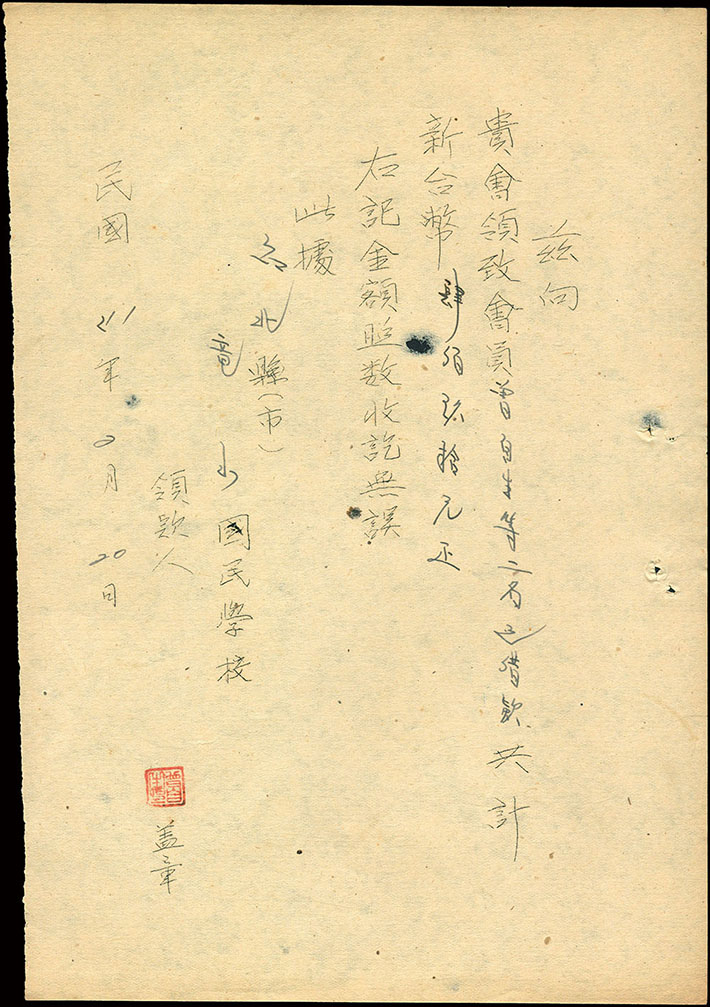 茲向
貴會領致會員曾自生等二名 借款共計
新台幣 佰 拾元正
右記金額照数收訖無誤
此據
台北縣(市)
竜山國民學校
領款人
盖章
民國 41年 月20日